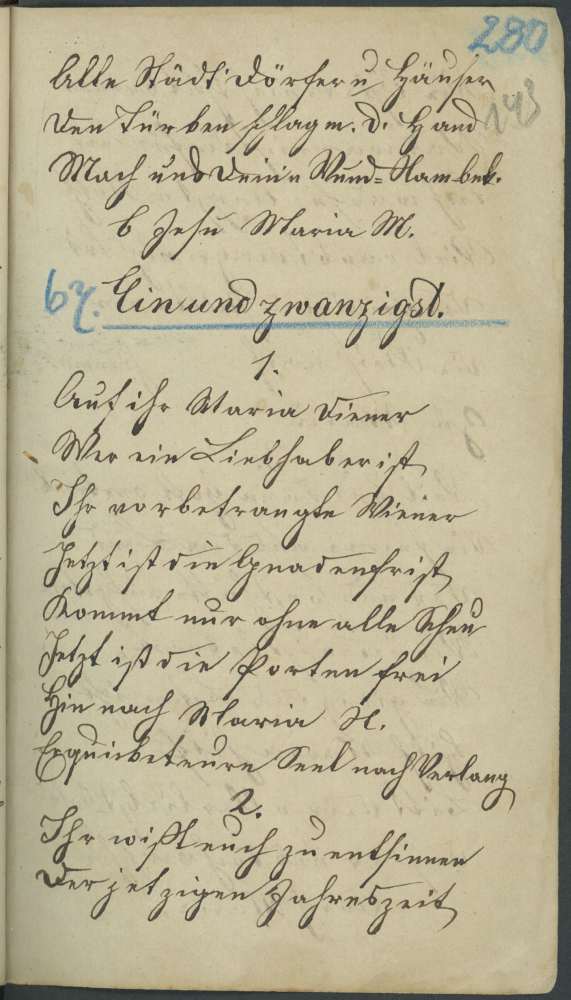 280
Alle Städt Dörfer u Häuser
143
Den Türken schlag m. d. Hand
Mach uns Deine Wund= Nam bek.
6 Jesu Maria M.
67. Einundzwanzigst.
1.
Auf ihr Maria Diener
Wer ein Liebhaber ist
Ihr vorbetrangte Wiener
Jetzt ist die Gnadenfrist
Kommt nur ohne alle Scheu
Jetzt ist die Porten frei
Hin nach Maria H.
Erquicket eure Seel nach Verlang
2.
Ihr wißt euch zu entsinnen
Der jetzigen Jahreszeit